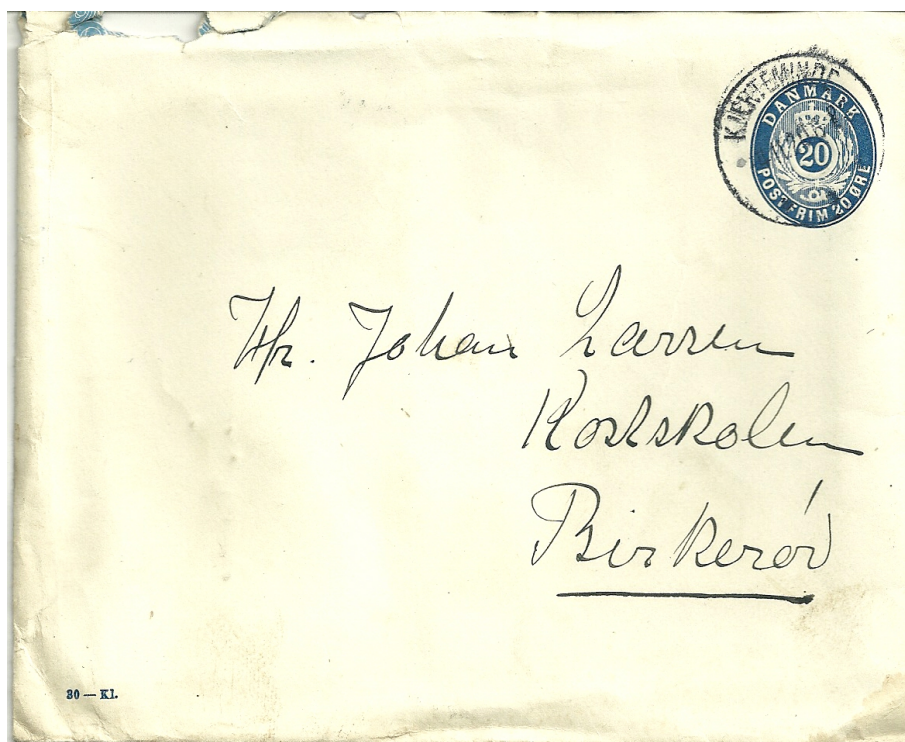 KJERTEMINDE
DANMARK
20
POSTFRIM 20 ØRE
Hr. Johan Larsen
Kostskolen
Birkerød
30 — Kl.